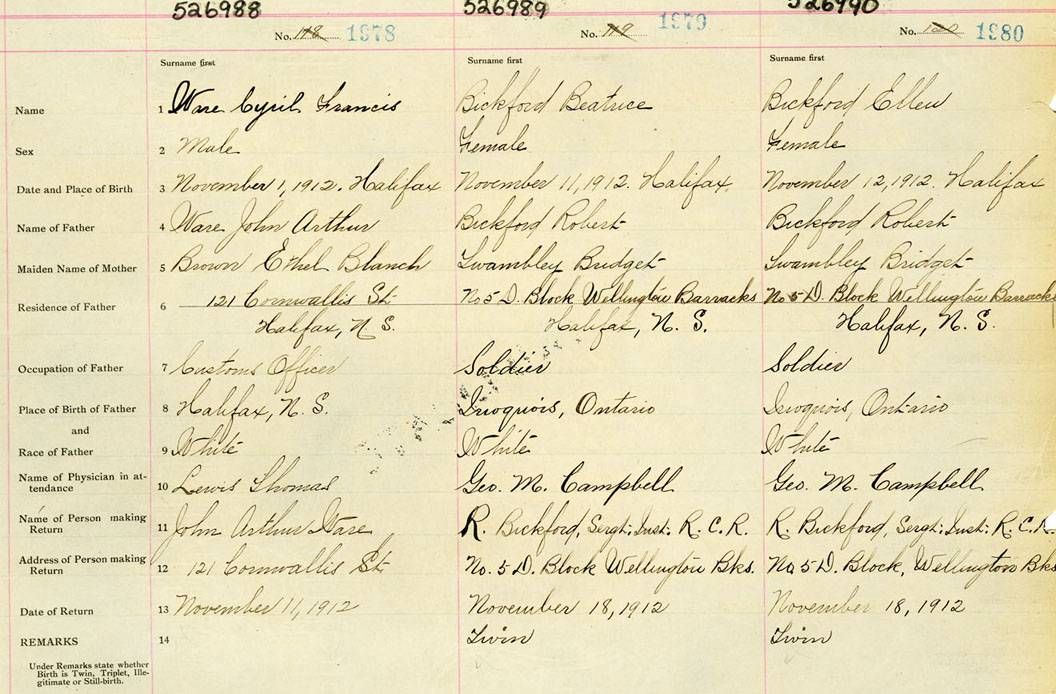 526988 526989 526990
No. 118 1978 No. 119 1979 No. 120 1980
Surname first Surname first Surname first
Name 1 Ware Cyril Francis Bickford Beatrice Bickford Ellen
Sex 2 Male Female Female
Date and Place of Birth 3 November 1, 1912. Halifax November 11, 1912. Halifax. November 12, 1912. Halifax
Name of Father 4 Ware John Arthur Bickford Robert Bickford Robert
Maiden Name of Mother 5 Brown Ethel Blanch Swambley Bridget Swambley Bridget
Residence of Father 6 121 Cornwallis St. No 5 D. Block Wellington Barracks No 5 D. Block Wellington Barracks
Halifax, N. S. Halifax, N. S. Halifax, N. S.
Occupation of Father 7 Customs Officer Soldier Soldier
Place of Birth of Father 8 Halifax, N. S. Iroquois, Ontario Iroquois, Ontario
and
Race of Father 9 White White White
Name of Physician in at-
tendance 10 Lewis Thomas Geo. M. Campbell Geo. M. Campbell
Name of Person making
Return 11 John Arthur Ware R. Bickford, Sergt. Inst. R. C. R. R. Bickford, Sergt. Inst. R. C. R.
Address of Person making
Return 12 121 Cornwallis St. No. 5 D. Block Wellington Bks. No 5 D. Block, Wellington Bks
Date of Return 13 November 11, 1912 November 18, 1912 November 18, 1912
REMARKS 14 Twin Twin
Under Remarks state whether
Birth is Twin, Triplet, Ille-
gitimate or Still-birth.